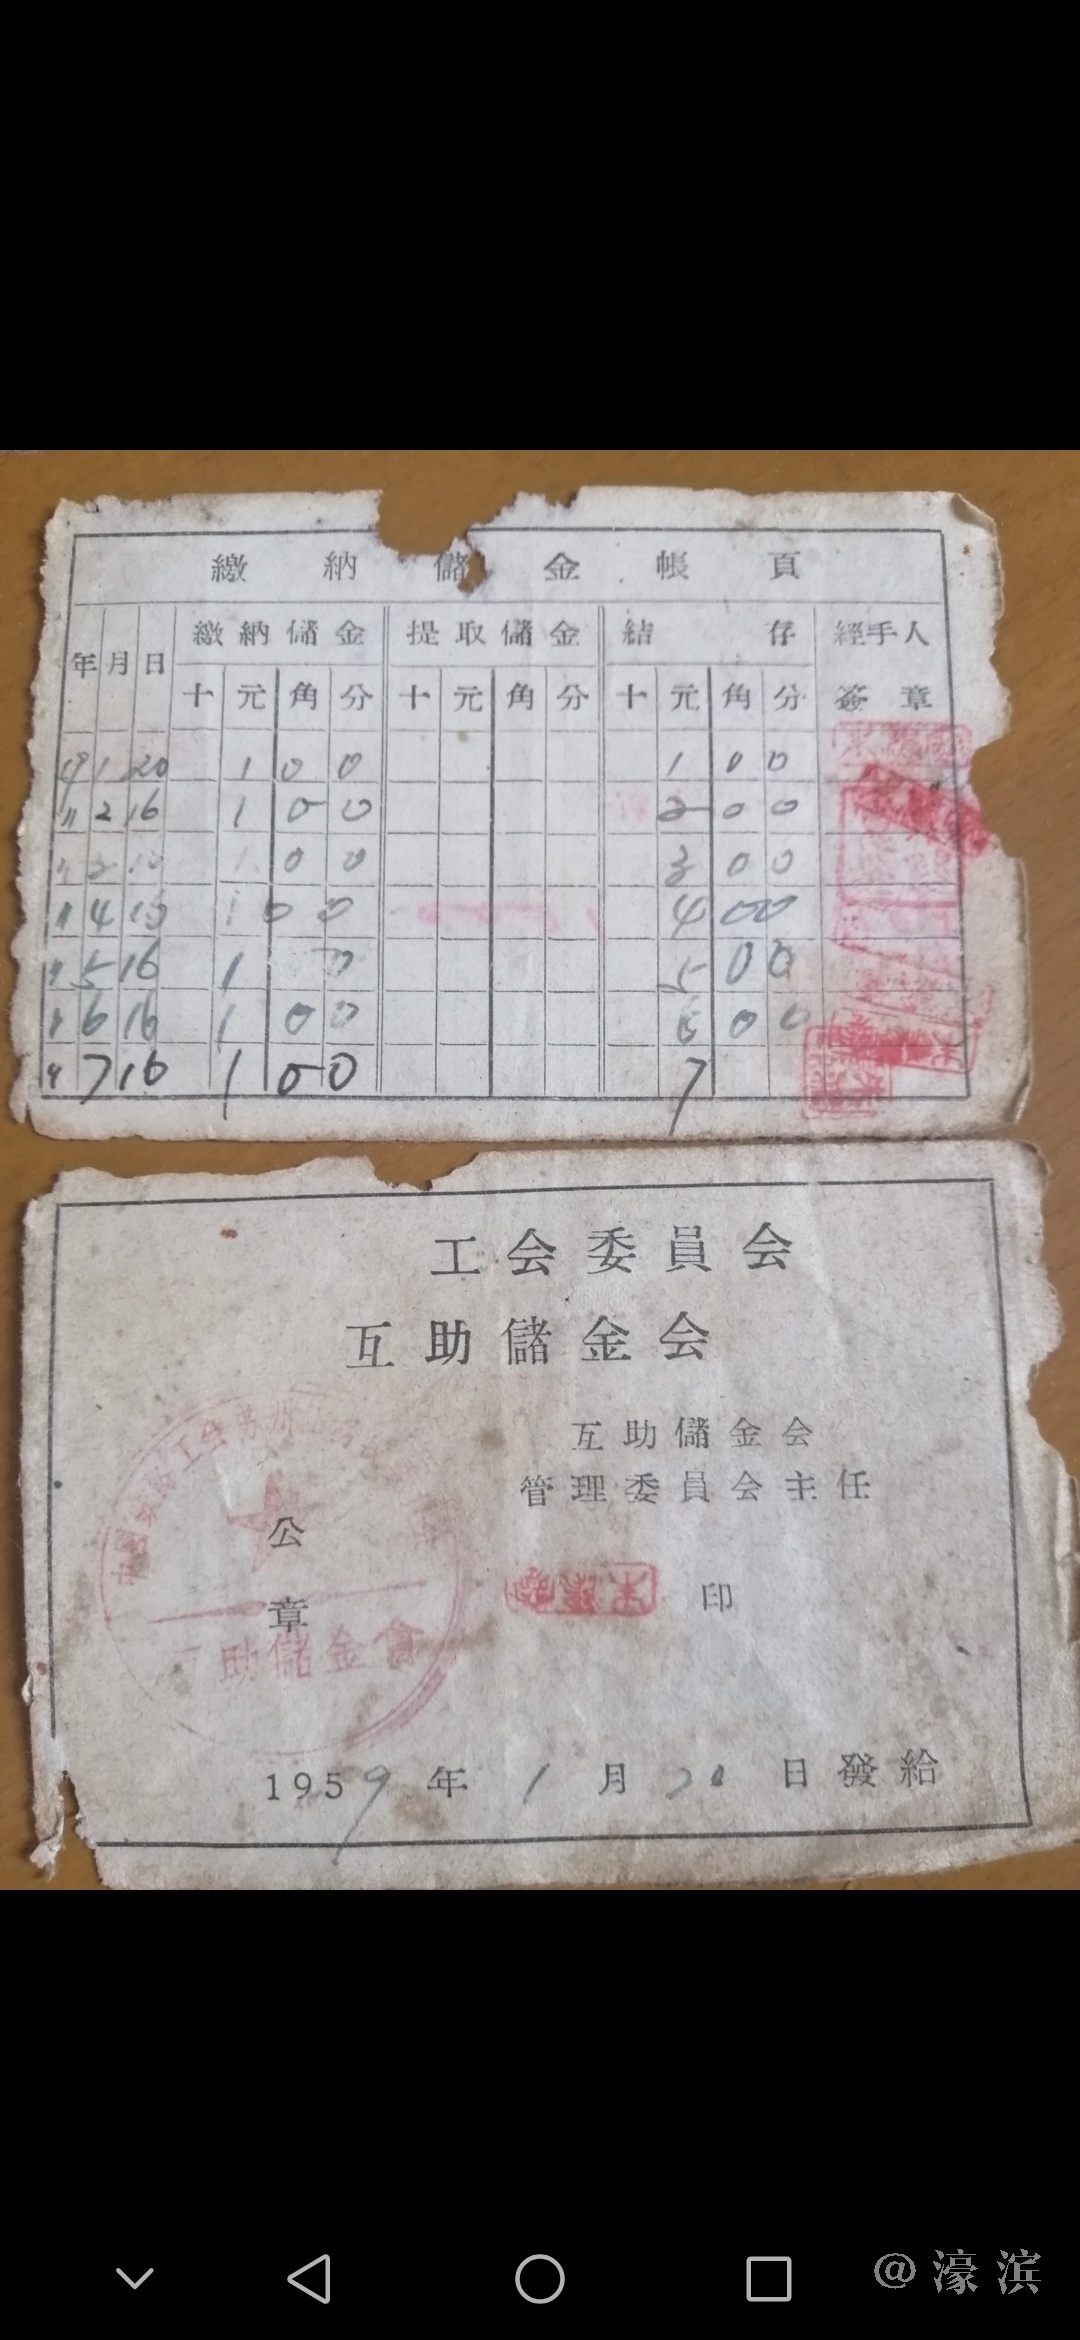 繳納儲金帳頁
年 月 日 繳納儲金 提取儲金 結存 經手人簽章
十 元 角 分 十 元 角 分 十 元 角 分
9 1 20 1 0 0 1 0 0
〃 2 16 1 0 0 2 0 0
〃 3 1 0 0 3 0 0
〃 4 1 0 0 4 0 0
〃 5 16 1 0 5 0 0
〃 6 16 1 0 0 6 0 0
〃 7 16 1 0 0 7
工会委員会
互助儲金会
互助儲金会
管理委員会主任
公章
印
助儲金會
1959年1月20日發給
@濠滨